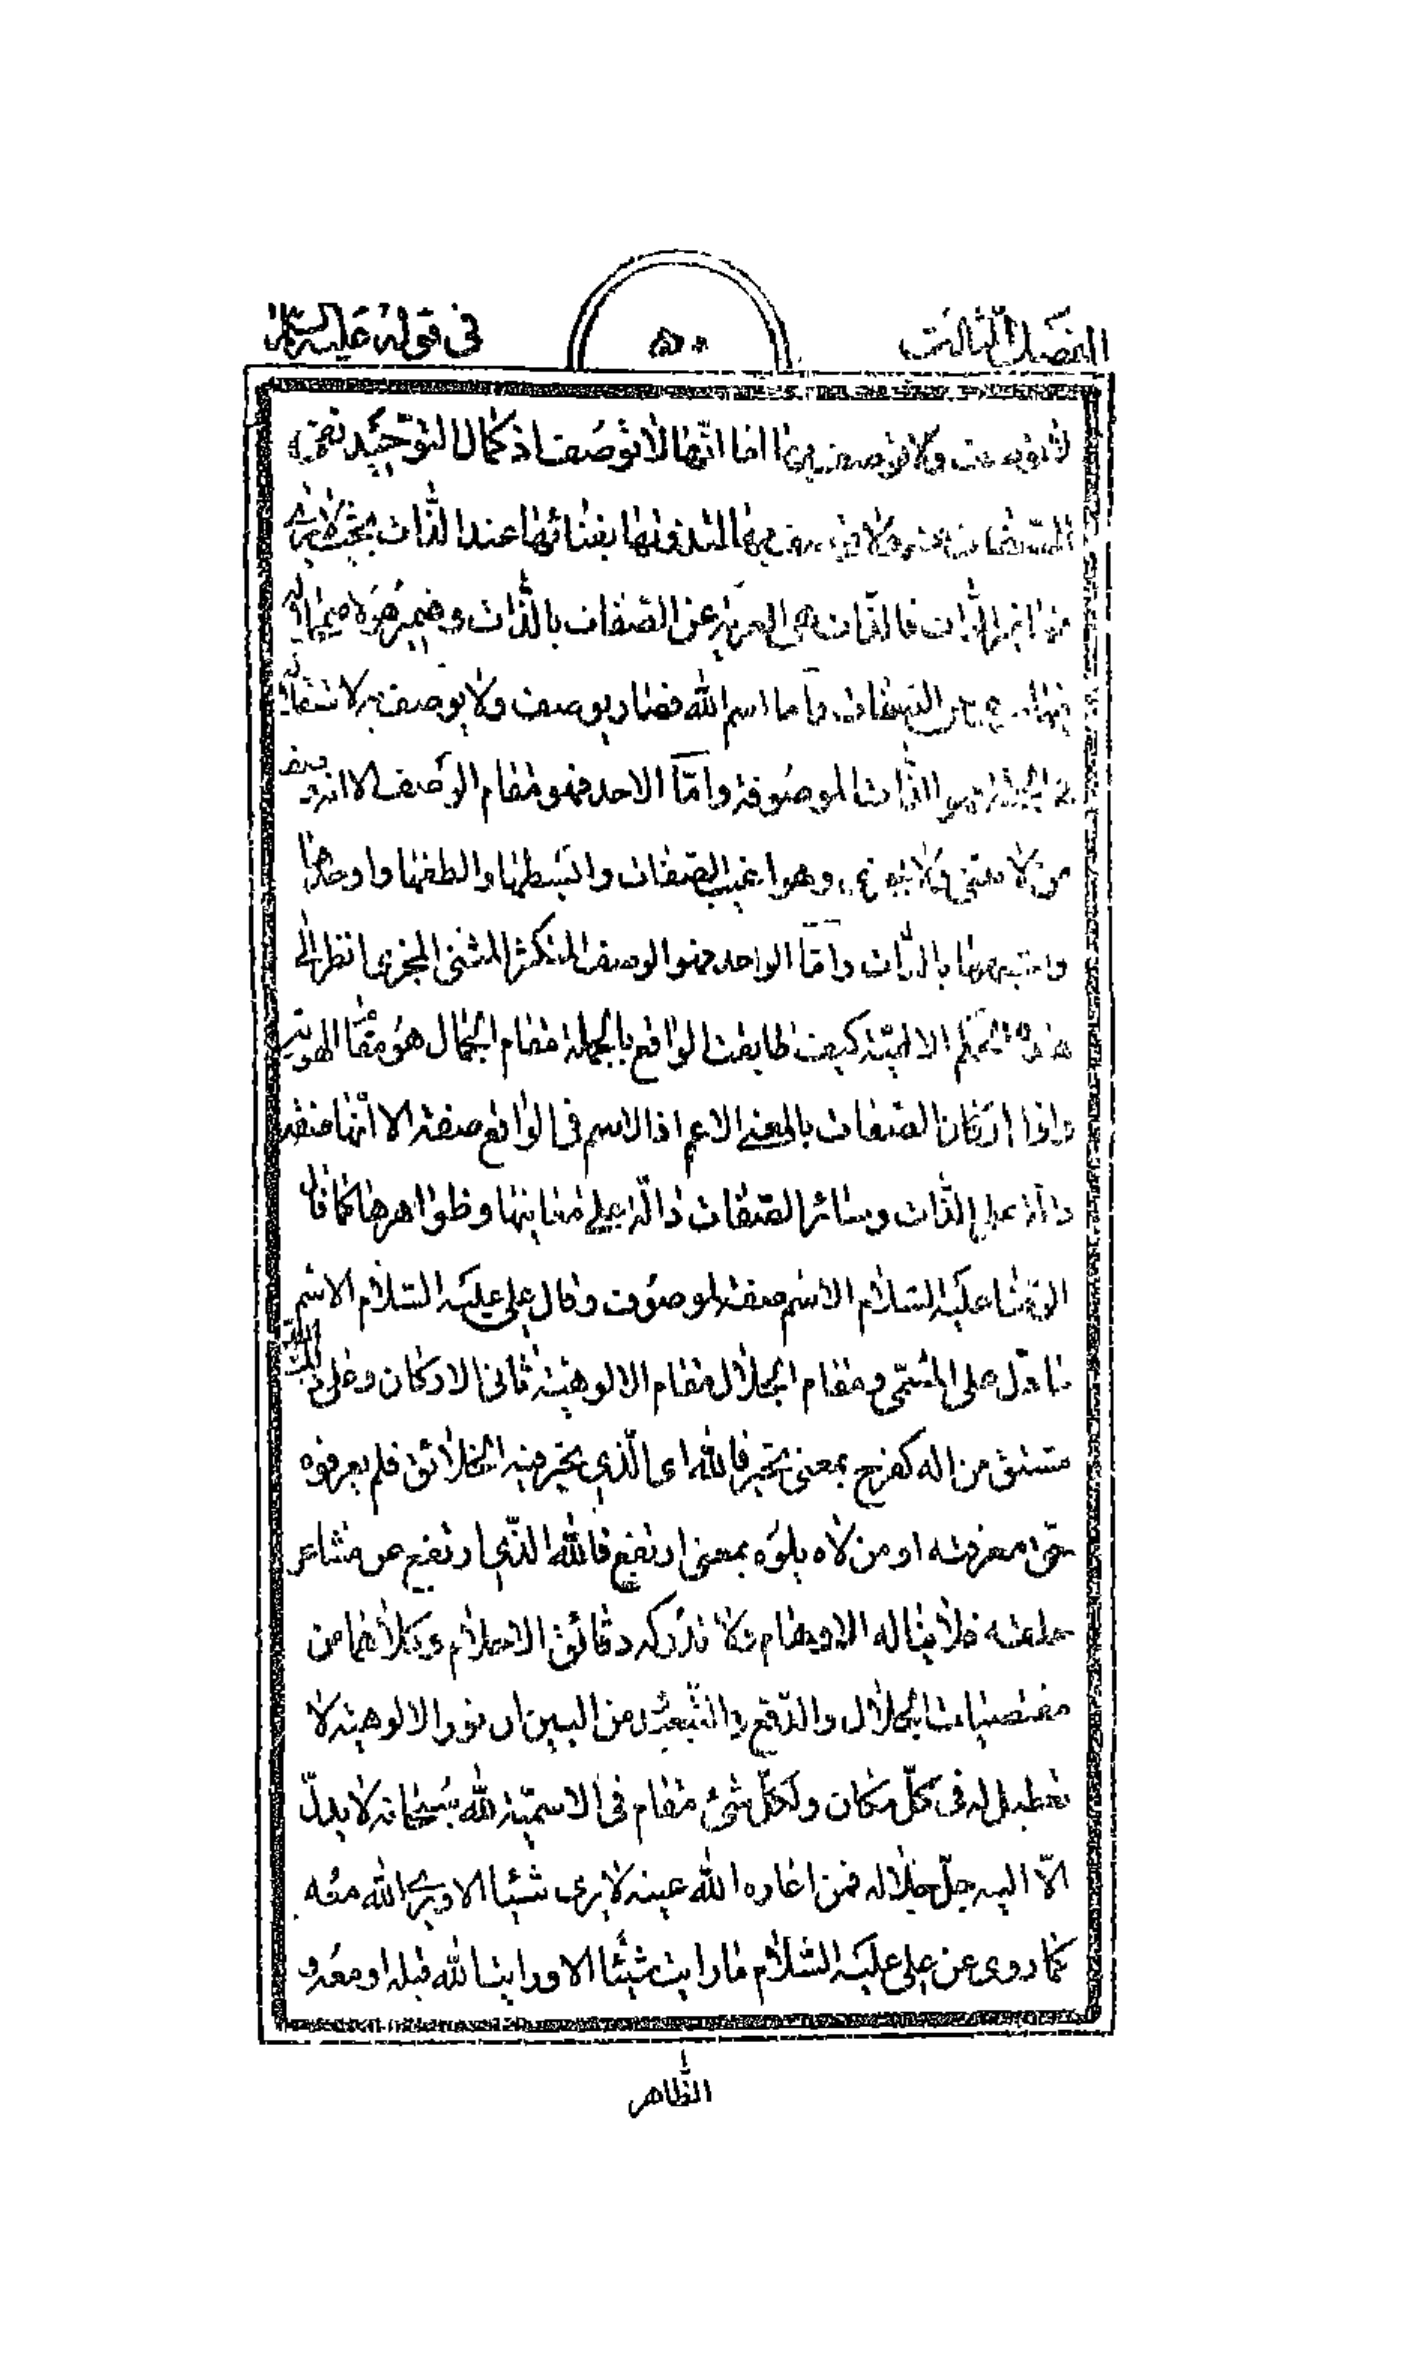 الفصل الثالث
۵۰
فی قوله علیه السلام
لا توصف ولا توصف بها اما انها لا توصف اذ كمال التوحيد نفی
الصفات عنه ولا توصف بها لتذوتها بفنائها عند الذات بحيث لا يری
الذات فالذات هی العرية عن الصفات بالذات وضمير هو
عن الصفات واما اسم الله فصار يوصف ولا يوصف به لاشتقاقه
هو الذات الموصوفة واما الاحد فهو مقام الوصف لا انه وصف
من لا ولا وهو اغيب الصفات وابسطها والطفها واوحدها
واشبهها بالذات واما الواحد فهو الوصف المتكثر المثنی المجزی انظر الی
هذه الحكم الالهية كيف طابقت الواقع بالجملة مقام الجمال هو مقام الهوية
واذا اركان الصفات بالمعنی الاعم اذ الاسم فی الواقع صفة الا انها صفة
دالة علی الذات وسائر الصفات دالة علی معانيها وظواهرها كما قال
الرضا عليه السلام الاسم صفة لموصوف وقال علی عليه السلام الاسم
ما دل علی المسمی ومقام الجلال مقام الالوهية ثانی الاركان وعلی
مشتق من اله كفرح بمعنی تحير فالله ای الذی تحير فيه الخلائق فلم يعرفوه
حق معرفته او من لاه يلوه بمعنی ارتفع فالله الذی ارتفع عن مشاعر
خليقته فلا يناله الاوهام ولا تدركه دقائق الاحلام وكلاهما من
مقتضيات الجلال والدفع والتبعيد ومن البين ان نور الالوهية لا
تعطيل له فی كل مكان ولكل شیء مقام فی الاسمية لله سبحانه لا يدل
الا اليه جل جلاله فمن اعاره الله عينه لا يری شيئا الا ويری الله معه
كما روی عن علی عليه السلام ما رايت شيئا الا ورايت الله قبله او معه و
الظاهر